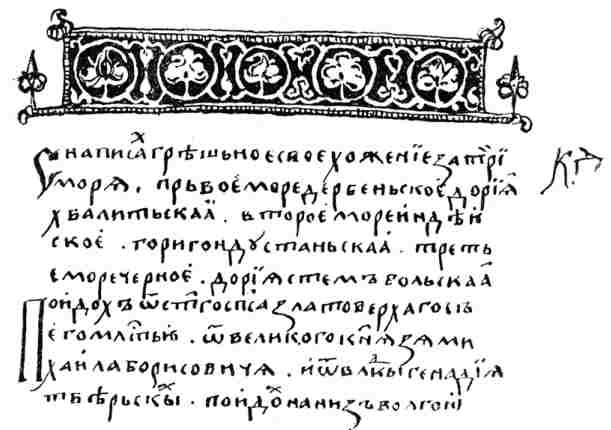 Се написаⷯ грѣшьное свое хоженїе за три
моря. прьвое море дербеньское дорїя
хвалитьскаа. второе море индѣй
ское. гори гондустаньскаа. треть
е море черное. дорїя стемъвольскаа
Поидохъ ѿ ст҃го сп҃са златоверхаго съ
его млⷭ҇тью. ѿ великого кн҃зя ми
хаила борисовичя. и ѿ влⷣкы генадїя
тверьскыⷯ. поидоⷯ на низъ волгою